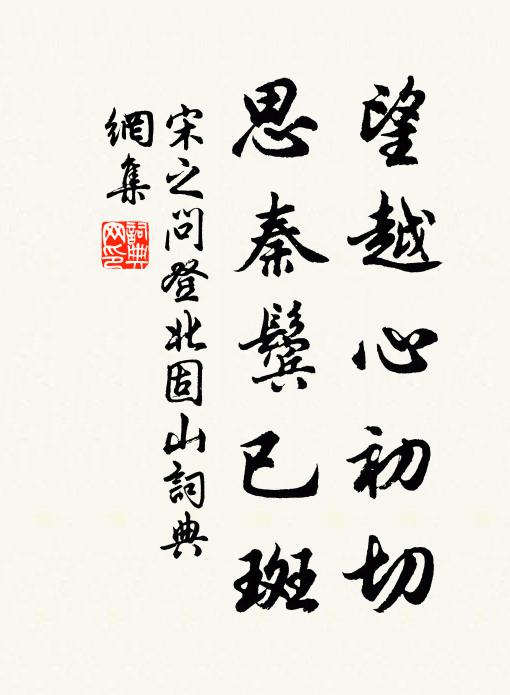 望越心初切
思秦鬢已斑
宋之問登北固山詞典
網集
詞典
网印